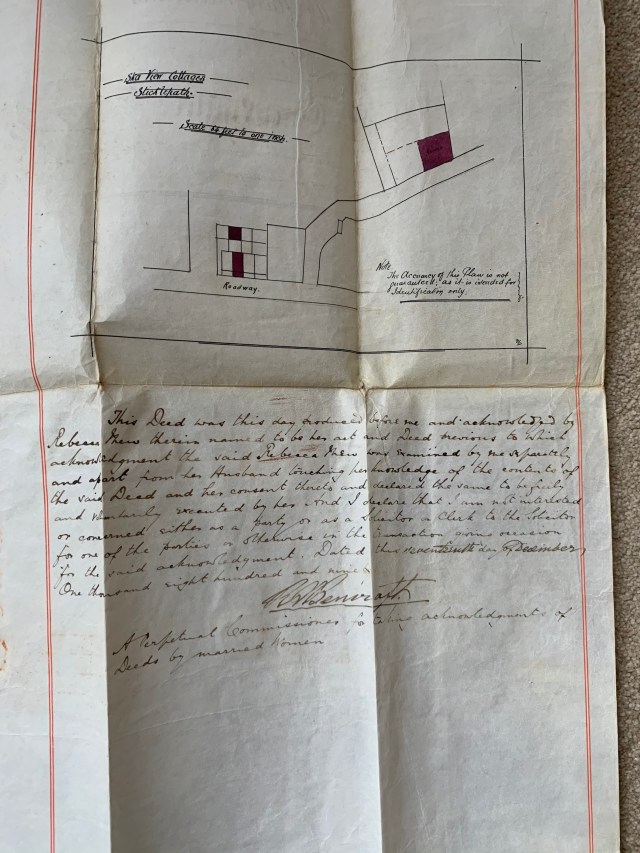 Sea View Cottages
Sticklepath.
Scale feet to one inch.
Roadway.
Note.
The Accuracy of this Plan is not
guaranteed; as it is intended for
Identification only.
This Deed was this day produced before me and acknowledged by
Rebecca therein named to be her act and Deed previous to which
acknowledgment the said Rebecca was examined by me separately
and apart from her Husband touching her knowledge of the contents of
the said Deed and her consent thereto and declared the same to be freely
and voluntarily executed by her And I declare that I am not interested
or concerned either as a party or as a Solicitor or Clerk to the Solicitor
for one of the parties or otherwise in the transaction giving occasion
for the said acknowledgment. Dated this seventeenth day of December
One thousand eight hundred and
Bencraft
A Perpetual Commissioner for taking acknowledgments of
Deeds by married women